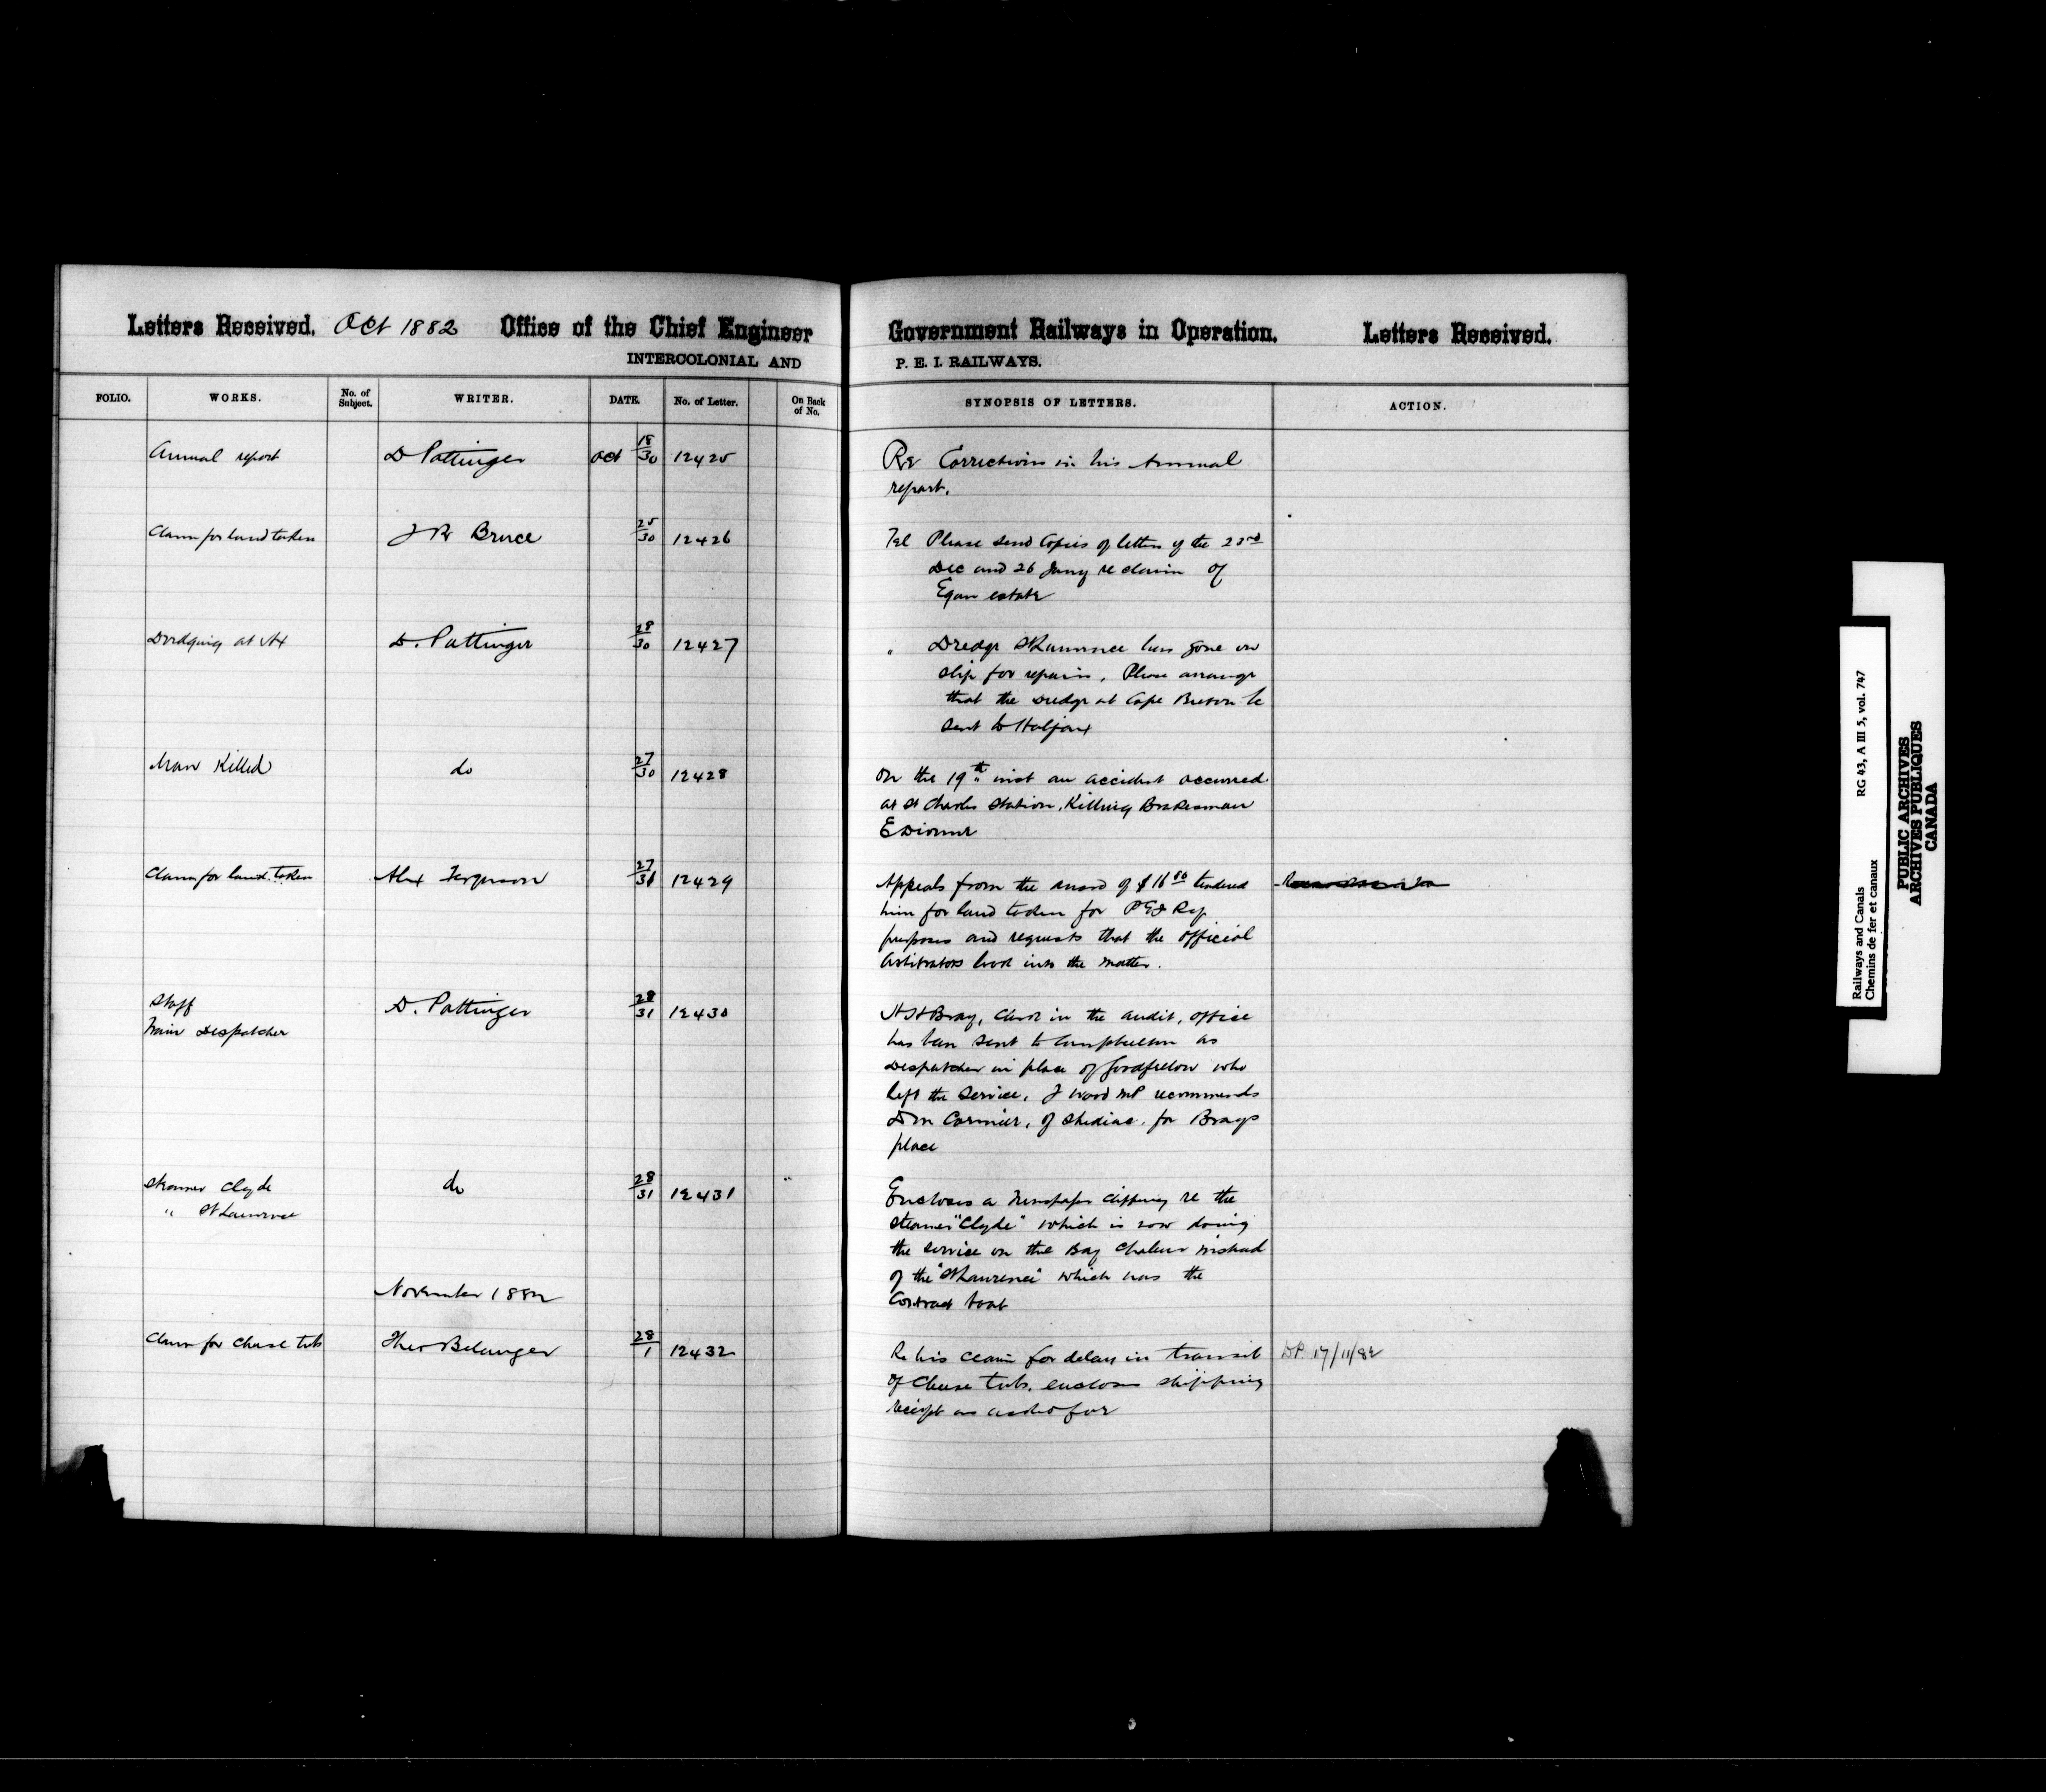 Letters Received. Oct 1882 Office of the Chief Engineer Government Railways in Operation. Letters Received.
INTERCOLONIAL AND P. E. I. RAILWAYS.
FOLIO. WORKS. No. of Subject. WRITER. DATE. No. of Letter. On Back of No. SYNOPSIS OF LETTERS. ACTION.
Annual report D Pottinger Oct 18/30 12425 Re Corrections in his Annual
report.
Claim for land taken J R Bruce 25/30 12426 Tel Please send Copies of letters of the 23rd
Dec and 26 Jany re claim of
Egan estate
Dredging at Hx D. Pottinger 28/30 12427 " Dredge St Lawrence has gone on
slip for repairs, Please arrange
that the dredge at Cape Breton be
sent to Halifax
Man Killed do 27/30 12428 On the 19th inst an accident occurred
at St Charles Station, Killing Brakesman
E Dionne
Claim for land taken Alex Ferguson 27/31 12429 Appeals from the award of $16 tendered
him for land taken for P E I Ry
purposes and requests that the official
Arbitrators look into the matter.
Staff D. Pottinger 28/31 12430 Bray, Clerk in the audit, office
Train Despatcher
has been sent to Campbellton as
Despatcher in place of Goodfellow who
left the service, J Wood MP recommends
D M Cormier, of Shediac, for Brays
place
Steamer Clyde do 28/31 12431 Encloses a Newspaper clipping re the
" St Lawrence
Steamer "Clyde" which is now doing
the service on the Bay Chaleur instead
of the "St Lawrence" which was the
Contract boat
November 1882
Claim for Cheese tubs Theo Belanger 28/1 12432 Re his claim for delay in transit DP. 17/11/82
of Cheese tubs, encloses shipping
receipt as asked for
RG 43, A III 5, vol. 747
Railways and Canals
Chemins de fer et canaux
PUBLIC ARCHIVES
ARCHIVES PUBLIQUES
CANADA